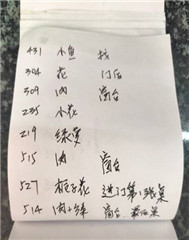 431 小鱼
304 花 门后
309 肉 窗台
235 小花
219 绿萝
515 肉 窗台
527 栀子花 进门第1张桌
514 肉+绿 窗台